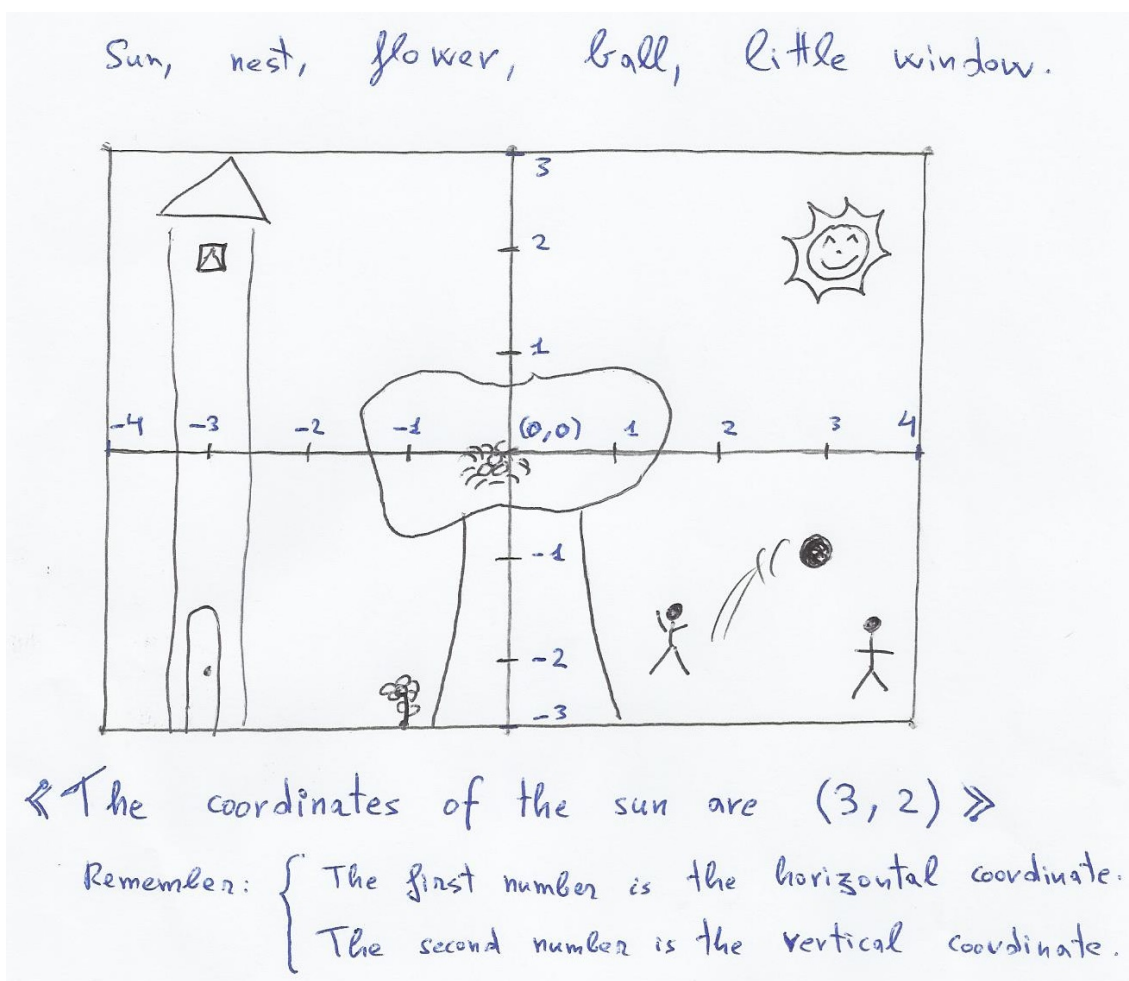 Sun, nest, flower, ball, little window.
3
2
1
-4 -3 -2 -1 (0,0) 1 2 3 4
-1
-2
-3
«The coordinates of the sun are (3,2)»
Remember: { The first number is the horizontal coordinate.
The second number is the vertical coordinate.